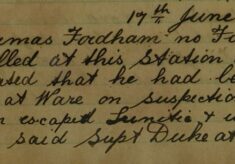 17th June
omas Fordham no F
lled at this Station
ated that he had be
at Ware on suspectio
n escaped Lunatic &
said Supt Duke at